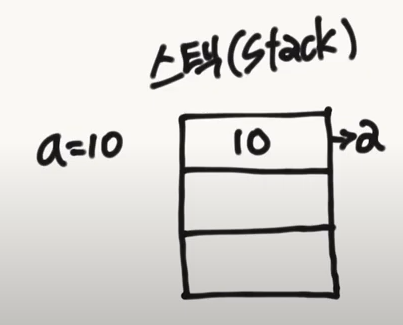 스택(Stack)
a=10
10
→a